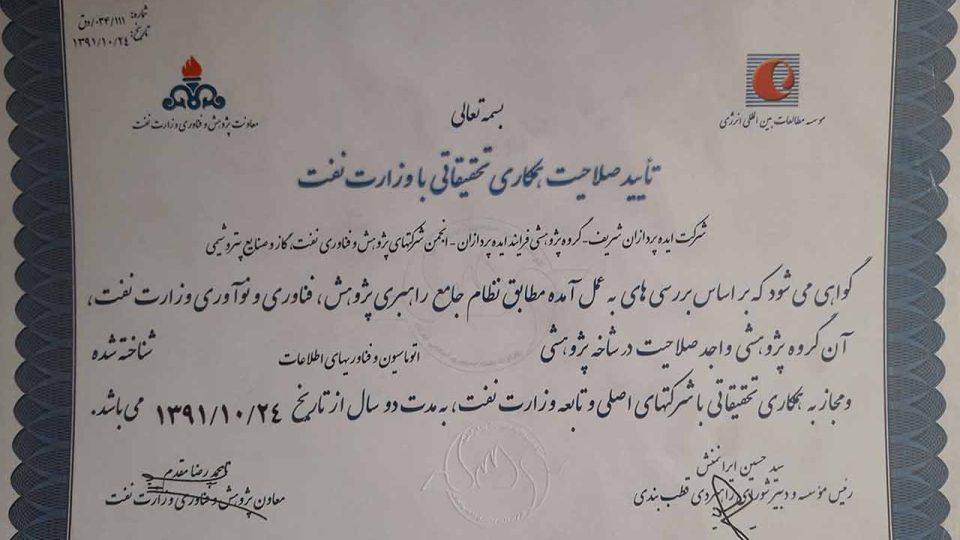 شماره: ۰۳۴/۱۱۱/دق
تاریخ: ۱۳۹۱/۱۰/۲۴
معاونت پژوهش و فناوری وزارت نفت
موسسه مطالعات بین المللی انرژی
بسمه تعالی
تأیید صلاحیت همکاری تحقیقاتی با وزارت نفت
شرکت ایده پردازان شریف - گروه پژوهشی فرایند ایده پردازان - انجمن شرکتهای پژوهش و فناوری نفت، گاز و صنایع پتروشیمی
گواهی می شود که بر اساس بررسی های به عمل آمده مطابق نظام جامع راهبری پژوهش، فناوری و نوآوری وزارت نفت،
آن گروه پژوهشی واجد صلاحیت در شاخه پژوهشی اتوماسیون و فناوریهای اطلاعات شناخته شده
و مجاز به همکاری تحقیقاتی با شرکتهای اصلی و تابعه وزارت نفت، به مدت دو سال از تاریخ ۱۳۹۱/۱۰/۲۴ می باشد.
سید حسین ایرانمنش
رئیس مؤسسه و دبیر شورای راهبردی قطب بندی
محمد رضا مقدم
معاون پژوهش و فناوری وزارت نفت